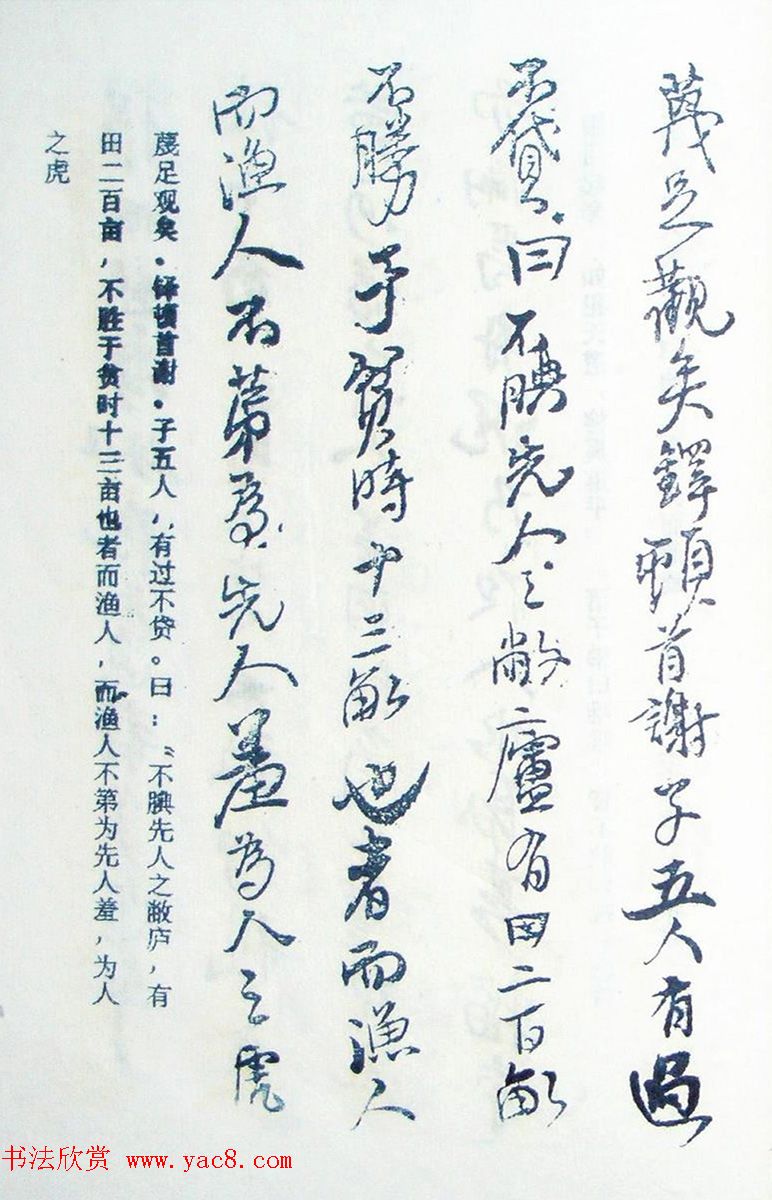 蔑足觀矣鐸頓首謝子五人有過
不貸曰不腆先人之敝廬有田二百畝
不勝于貧時十三畝也者而漁人
而漁人不苐爲先人羞為人之虎
蔑足观矣。铎顿首谢。子五人,有过不贷。曰:“不腆先人之敝庐,有
田二百亩,不胜于贫时十三亩也者而渔人,而渔人不第为先人羞,为人
之虎
书法欣赏 www.yac8.com